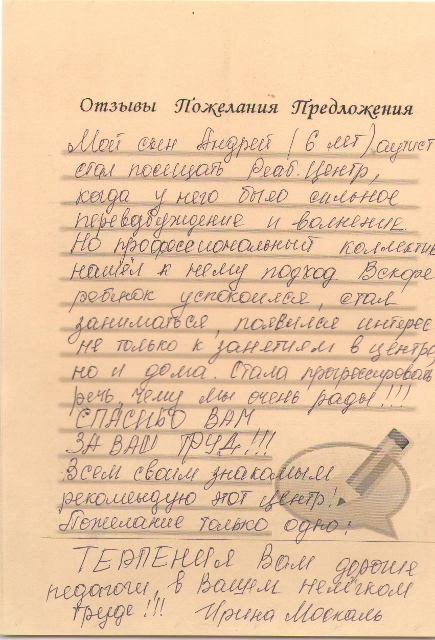 Отзывы Пожелания Предложения
Мой сын Андрей (6 лет) аутист
стал посещать Реаб. Центр,
когда у него было сильное
перевозбуждение и волнение.
Но профессиональный коллектив
нашёл к нему подход Вскоре
ребёнок успокоился, стал
заниматься, появился интерес
не только к занятиям в центре
но и дома. Стала прогрессировать
речь, чему мы очень рады!!!
СПАСИБО ВАМ
ЗА ВАШ ТРУД!!!
Всем своим знакомым
рекомендую этот центр!
Пожелание только одно:
ТЕРПЕНИЯ Вам дорогие
педагоги, в Вашем нелёгком
труде!!! Ирина Москаль